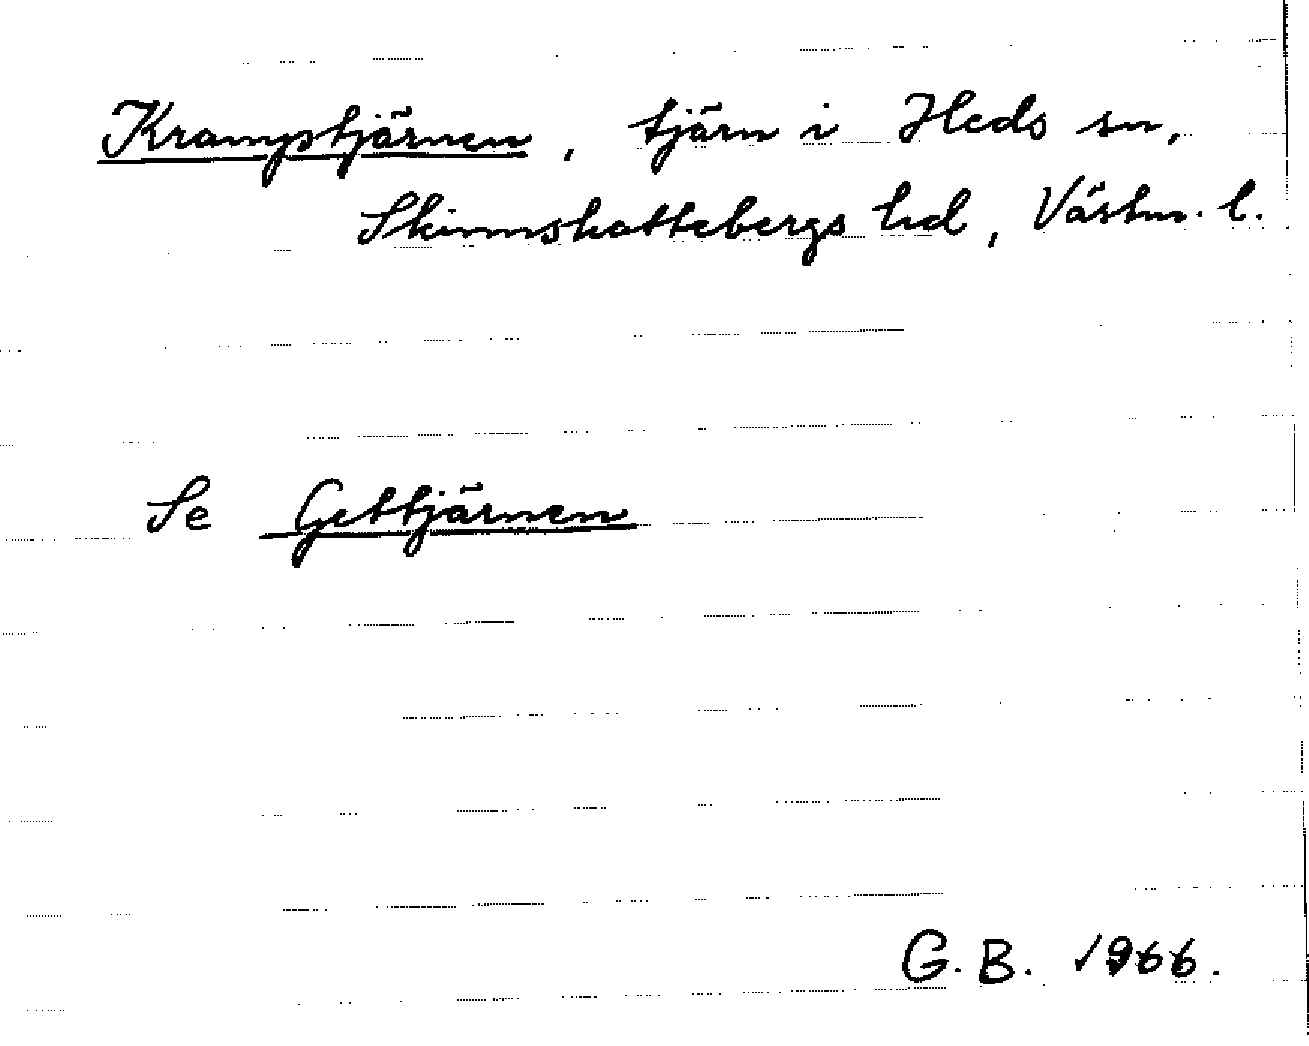 Kramptjärnen, tjärn i Heds sn,
Skinnskattebergs hd, Västm. l.
Se Gettjärnen
G. B. 1966.